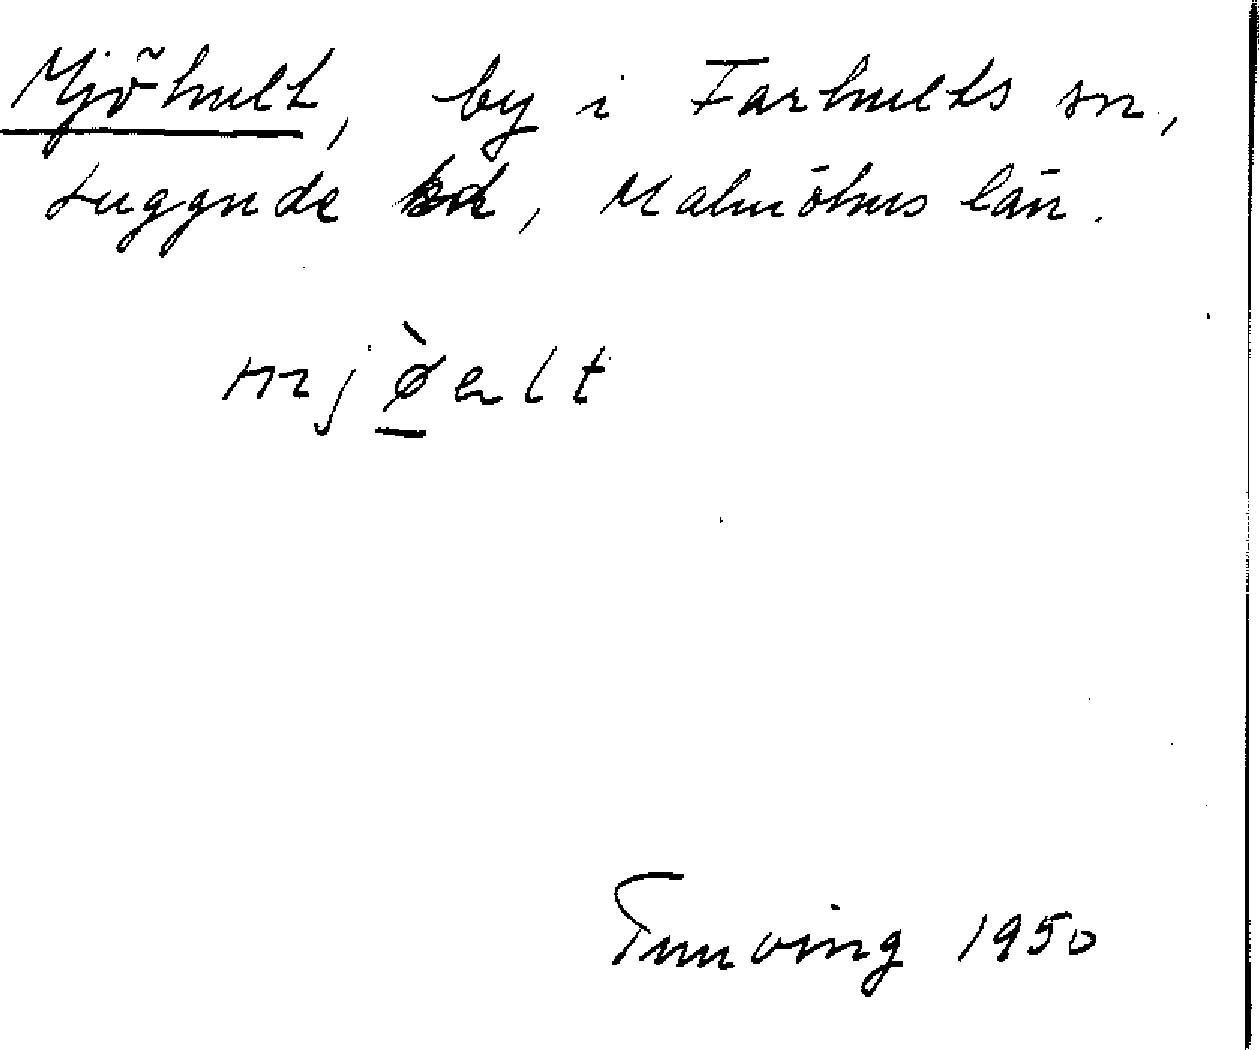 Mjöhult, by i Farhults sn,
Luggude hd, Malmöhus län.
mjø̱̀alt
Tunving 1950